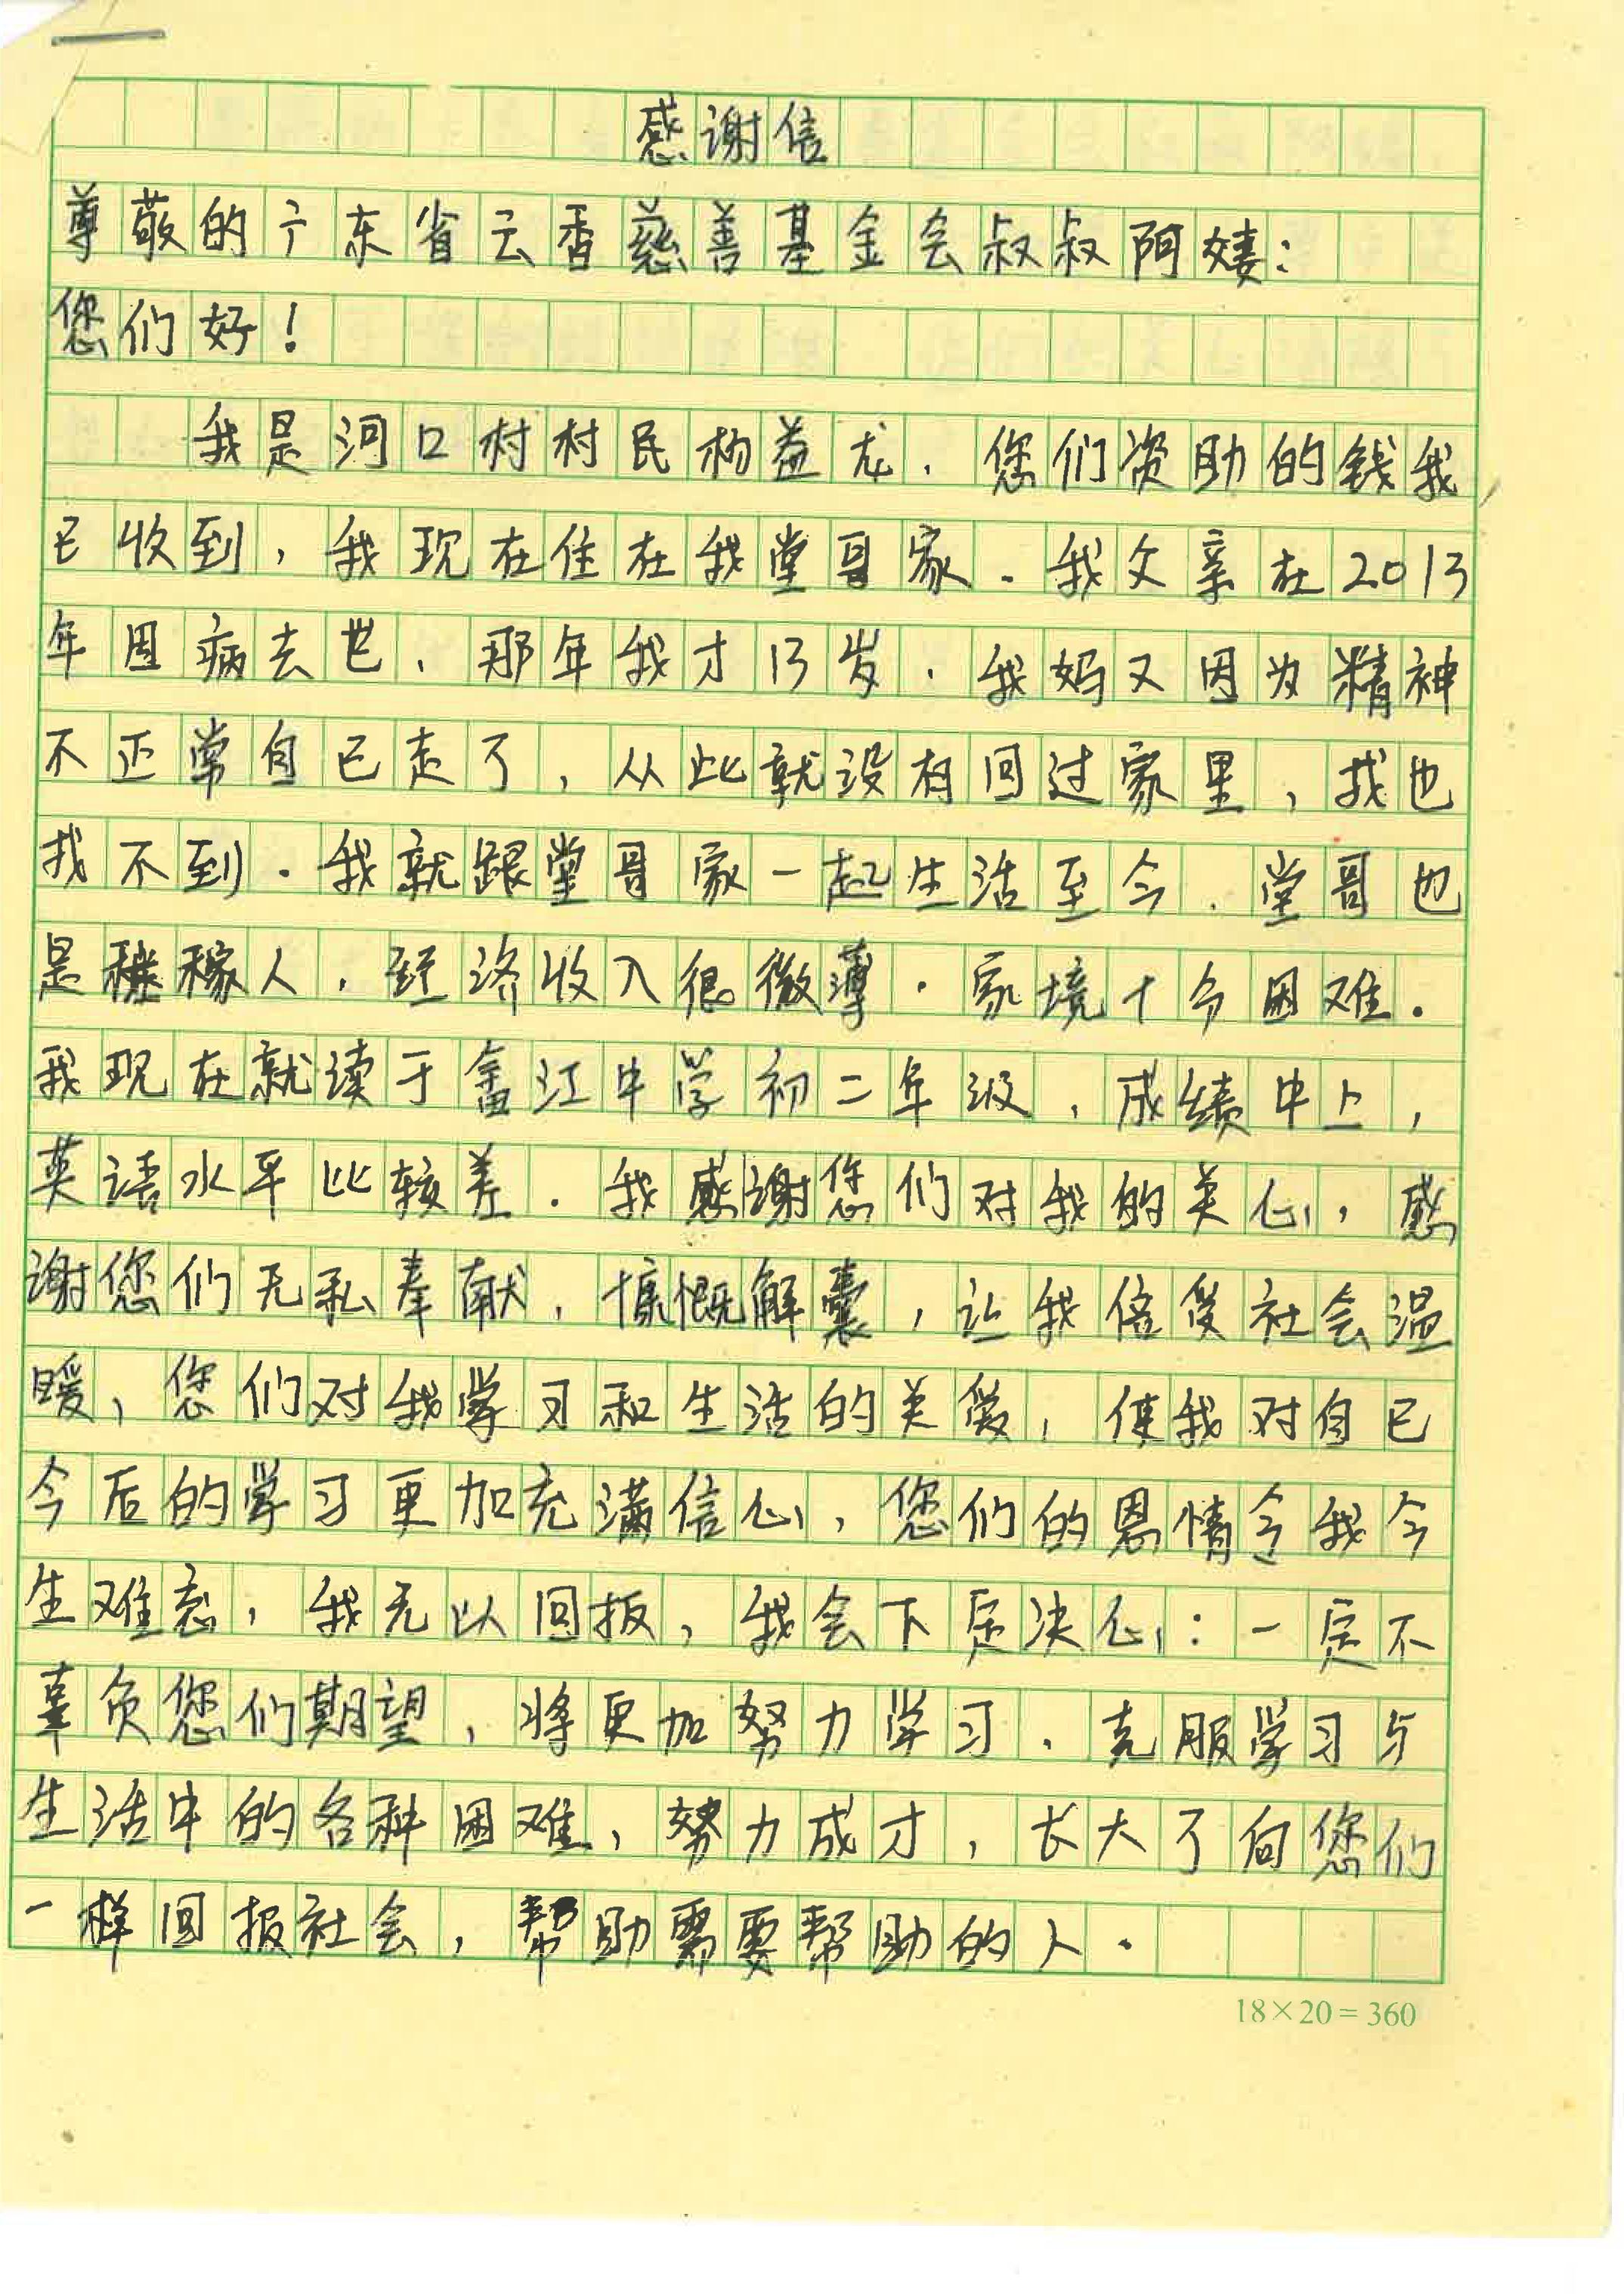 感谢信
尊敬的广东省云香慈善基金会叔叔阿姨：
您们好！
我是河口村村民杨益龙．您们资助的钱我
已收到，我现在住在我堂哥家．我父亲在2013
年因病去世、那年我才13岁．我妈又因为精神
不正常自已走了，从此就没有回过家里，找也
找不到．我就跟堂哥家一起生活至今．堂哥也
是耕稼人．经济收入很微薄．家境十分困难．
我现在就读于畲江中学初二年级，成绩中上，
英语水平比较差．我感谢您们对我的关心，感
谢您们无私奉献，慷慨解囊，让我倍受社会温
暖，您们对我学习和生活的关爱，使我对自已
今后的学习更加充满信心，您们的恩情令我今
生难忘，我无以回报，我会下定决心：一定不
辜负您们期望，将更加努力学习．克服学习与
生活中的各种困难，努力成才，长大了向您们
一样回报社会，帮助需要帮助的人．
18×20=360